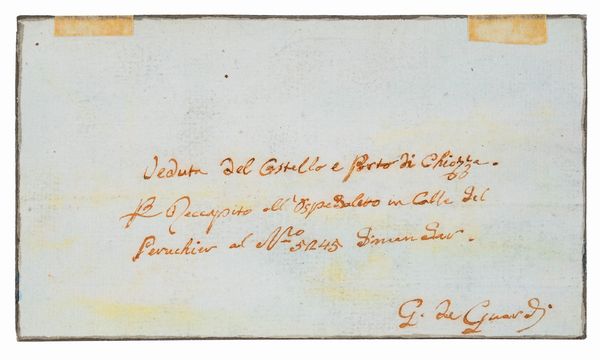 Veduta del Castello e Porto di Chiozza.
Pr Reccapito all' Ospedaleto in Calle del
Peruchier al Nro 5245 Dimandar.
G. de Guardi